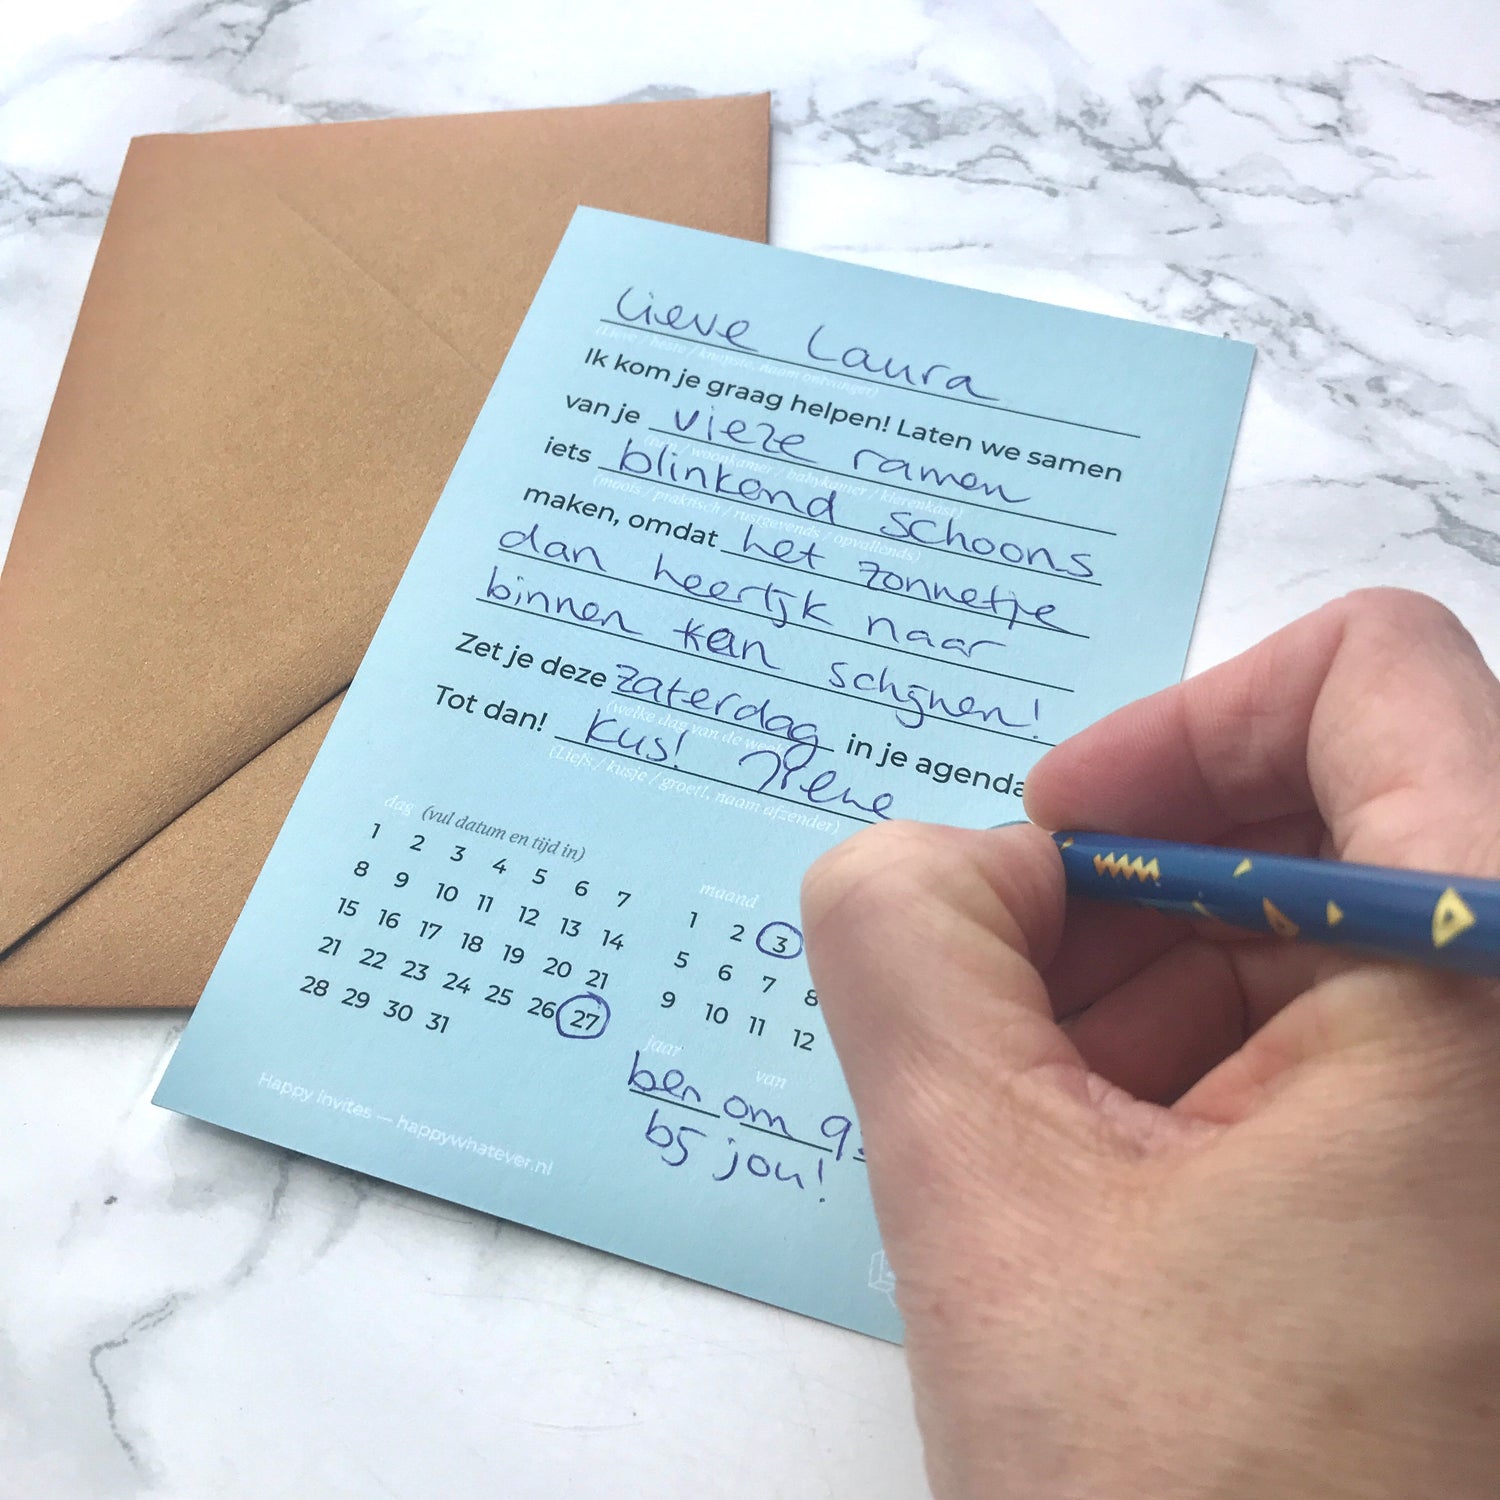 Lieve Laura
(Lieve / beste / knapste, naam ontvanger)
Ik kom je graag helpen! Laten we samen
van je vieze ramen
/ woonkamer / babykamer / klerenkast)
iets blinkend schoons
(moois / praktisch / rustgevends / opvallends)
maken, omdat het zonnetje
dan heerlijk naar
binnen kan schijnen!
Zet je deze zaterdag in je agenda
(welke dag van de week)
Tot dan! Kus! Irene
(Liefs / kusje / groet!, naam afzender)
dag (vul datum en tijd in)
1 2 3 4 5 6 7
8 9 10 11 12 13 14
15 16 17 18 19 20 21
21 22 23 24 25 26 27
28 29 30 31
maand
1 2 3
5 6 7 8
9 10 11 12
jaar van
ben om 9
bij jou!
Happy Invites — happywhatever.nl